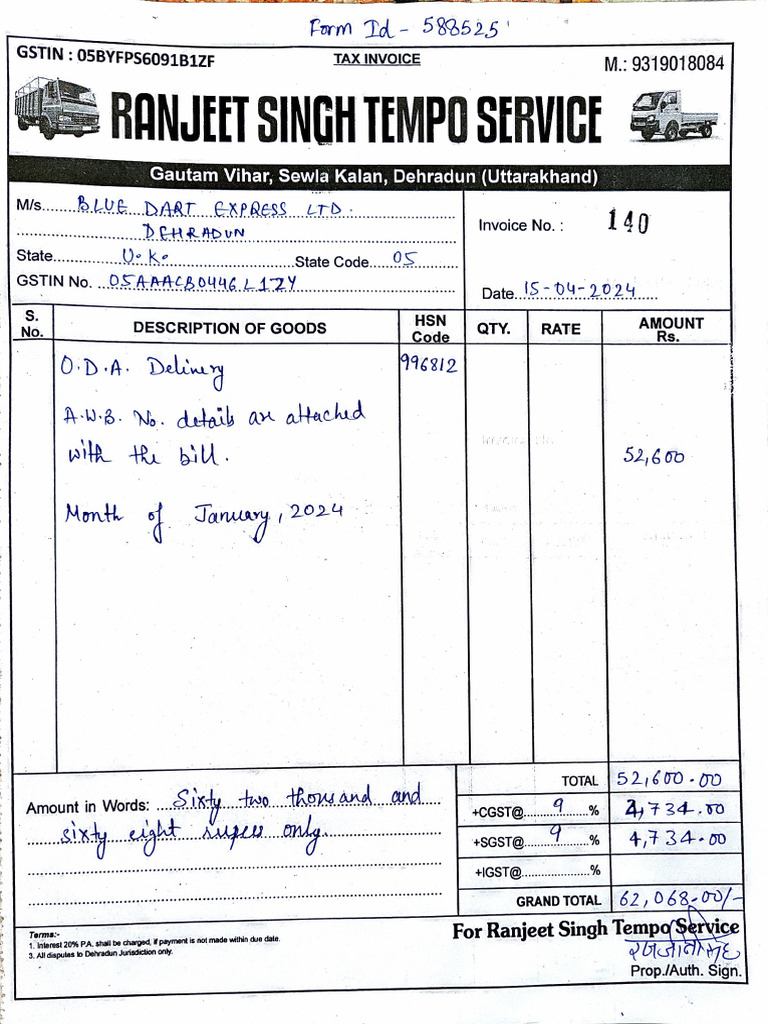 Form Id - 588525
GSTIN : 05BYFPS6091B1ZF
TAX INVOICE
M.: 9319018084
RANJEET SINGH TEMPO SERVICE
Gautam Vihar, Sewla Kalan, Dehradun (Uttarakhand)
M/s. BLUE DART EXPRESS LTD.
DEHRADUN
State U.K. State Code 05
GSTIN No. 05AAACB0446L1ZY
Invoice No. : 140
Date 15-04-2024
S. No. DESCRIPTION OF GOODS HSN Code QTY. RATE AMOUNT Rs.
O.D.A. Delivery 996812
A.W.B. No. details are attached
with the bill. 52,600
Month of January, 2024
TOTAL 52,600.00
Amount in Words: Sixty two thousand and
sixty eight rupees only.
+CGST@ 9 % 4,734.00
+SGST@ 9 % 4,734.00
+IGST@ %
GRAND TOTAL 62,068.00/-
Terms:-
1. Interest 20% P.A. shall be charged, if payment is not made within due date.
3. All disputes to Dehradun Jurisdiction only.
For Ranjeet Singh Tempo Service
Prop./Auth. Sign.